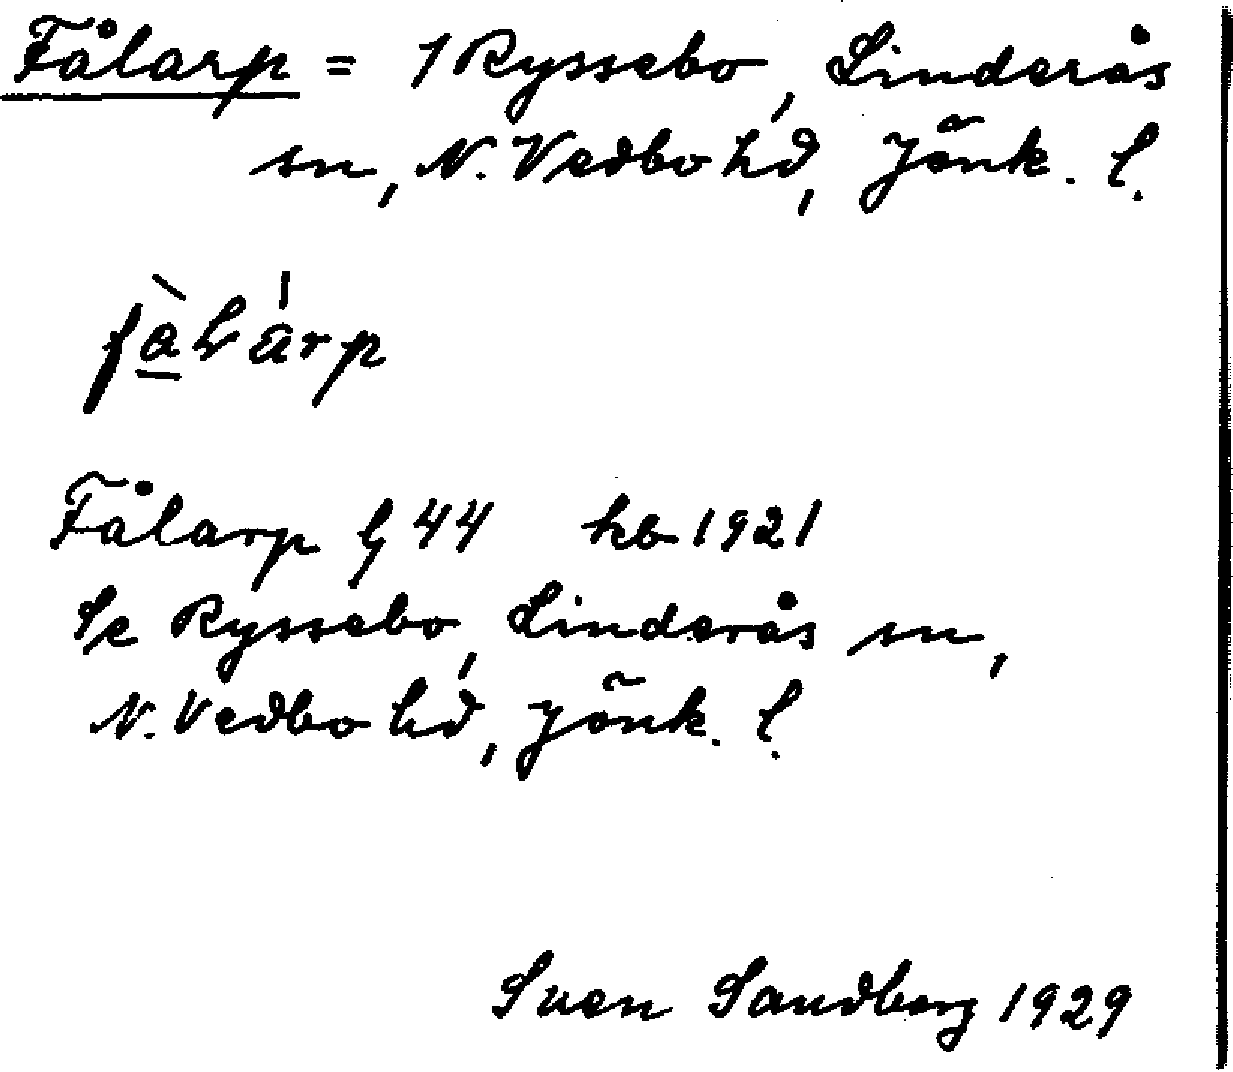 Fålarp = 1 Ryssebo, Linderås
sn, N. Vedbo hd, Jönk. l.
fàlárp
Fålarp § 44 hb 1921
Se Ryssebo, Linderås sn,
N. Vedbo hd, Jönk. l.
Sven Sandberg 1929